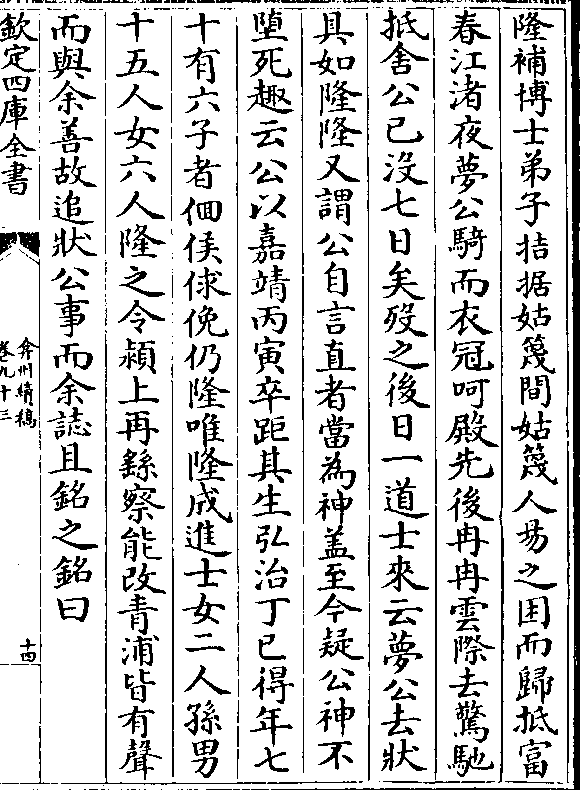 隆補博士弟子拮据姑篾間姑篾人易之困而歸抵富
春江渚夜夢公騎而衣冠呵殿先後冉冉雲際去驚馳
抵舍公已沒七日矣歿之後日一道士來云夢公去狀
具如隆隆又謂公自言直者當為神盖至今疑公神不
墮死趣云公以嘉靖丙寅卒距其生弘治丁巳得年七
十有六子者佃侯俅俛仍隆唯隆成進士女二人孫男
十五人女六人隆之令潁上再繇察能改青浦皆有聲
而與余善故追狀公事而余誌且銘之銘曰
欽定四庫全書
弇州續稿
卷九十三
十四